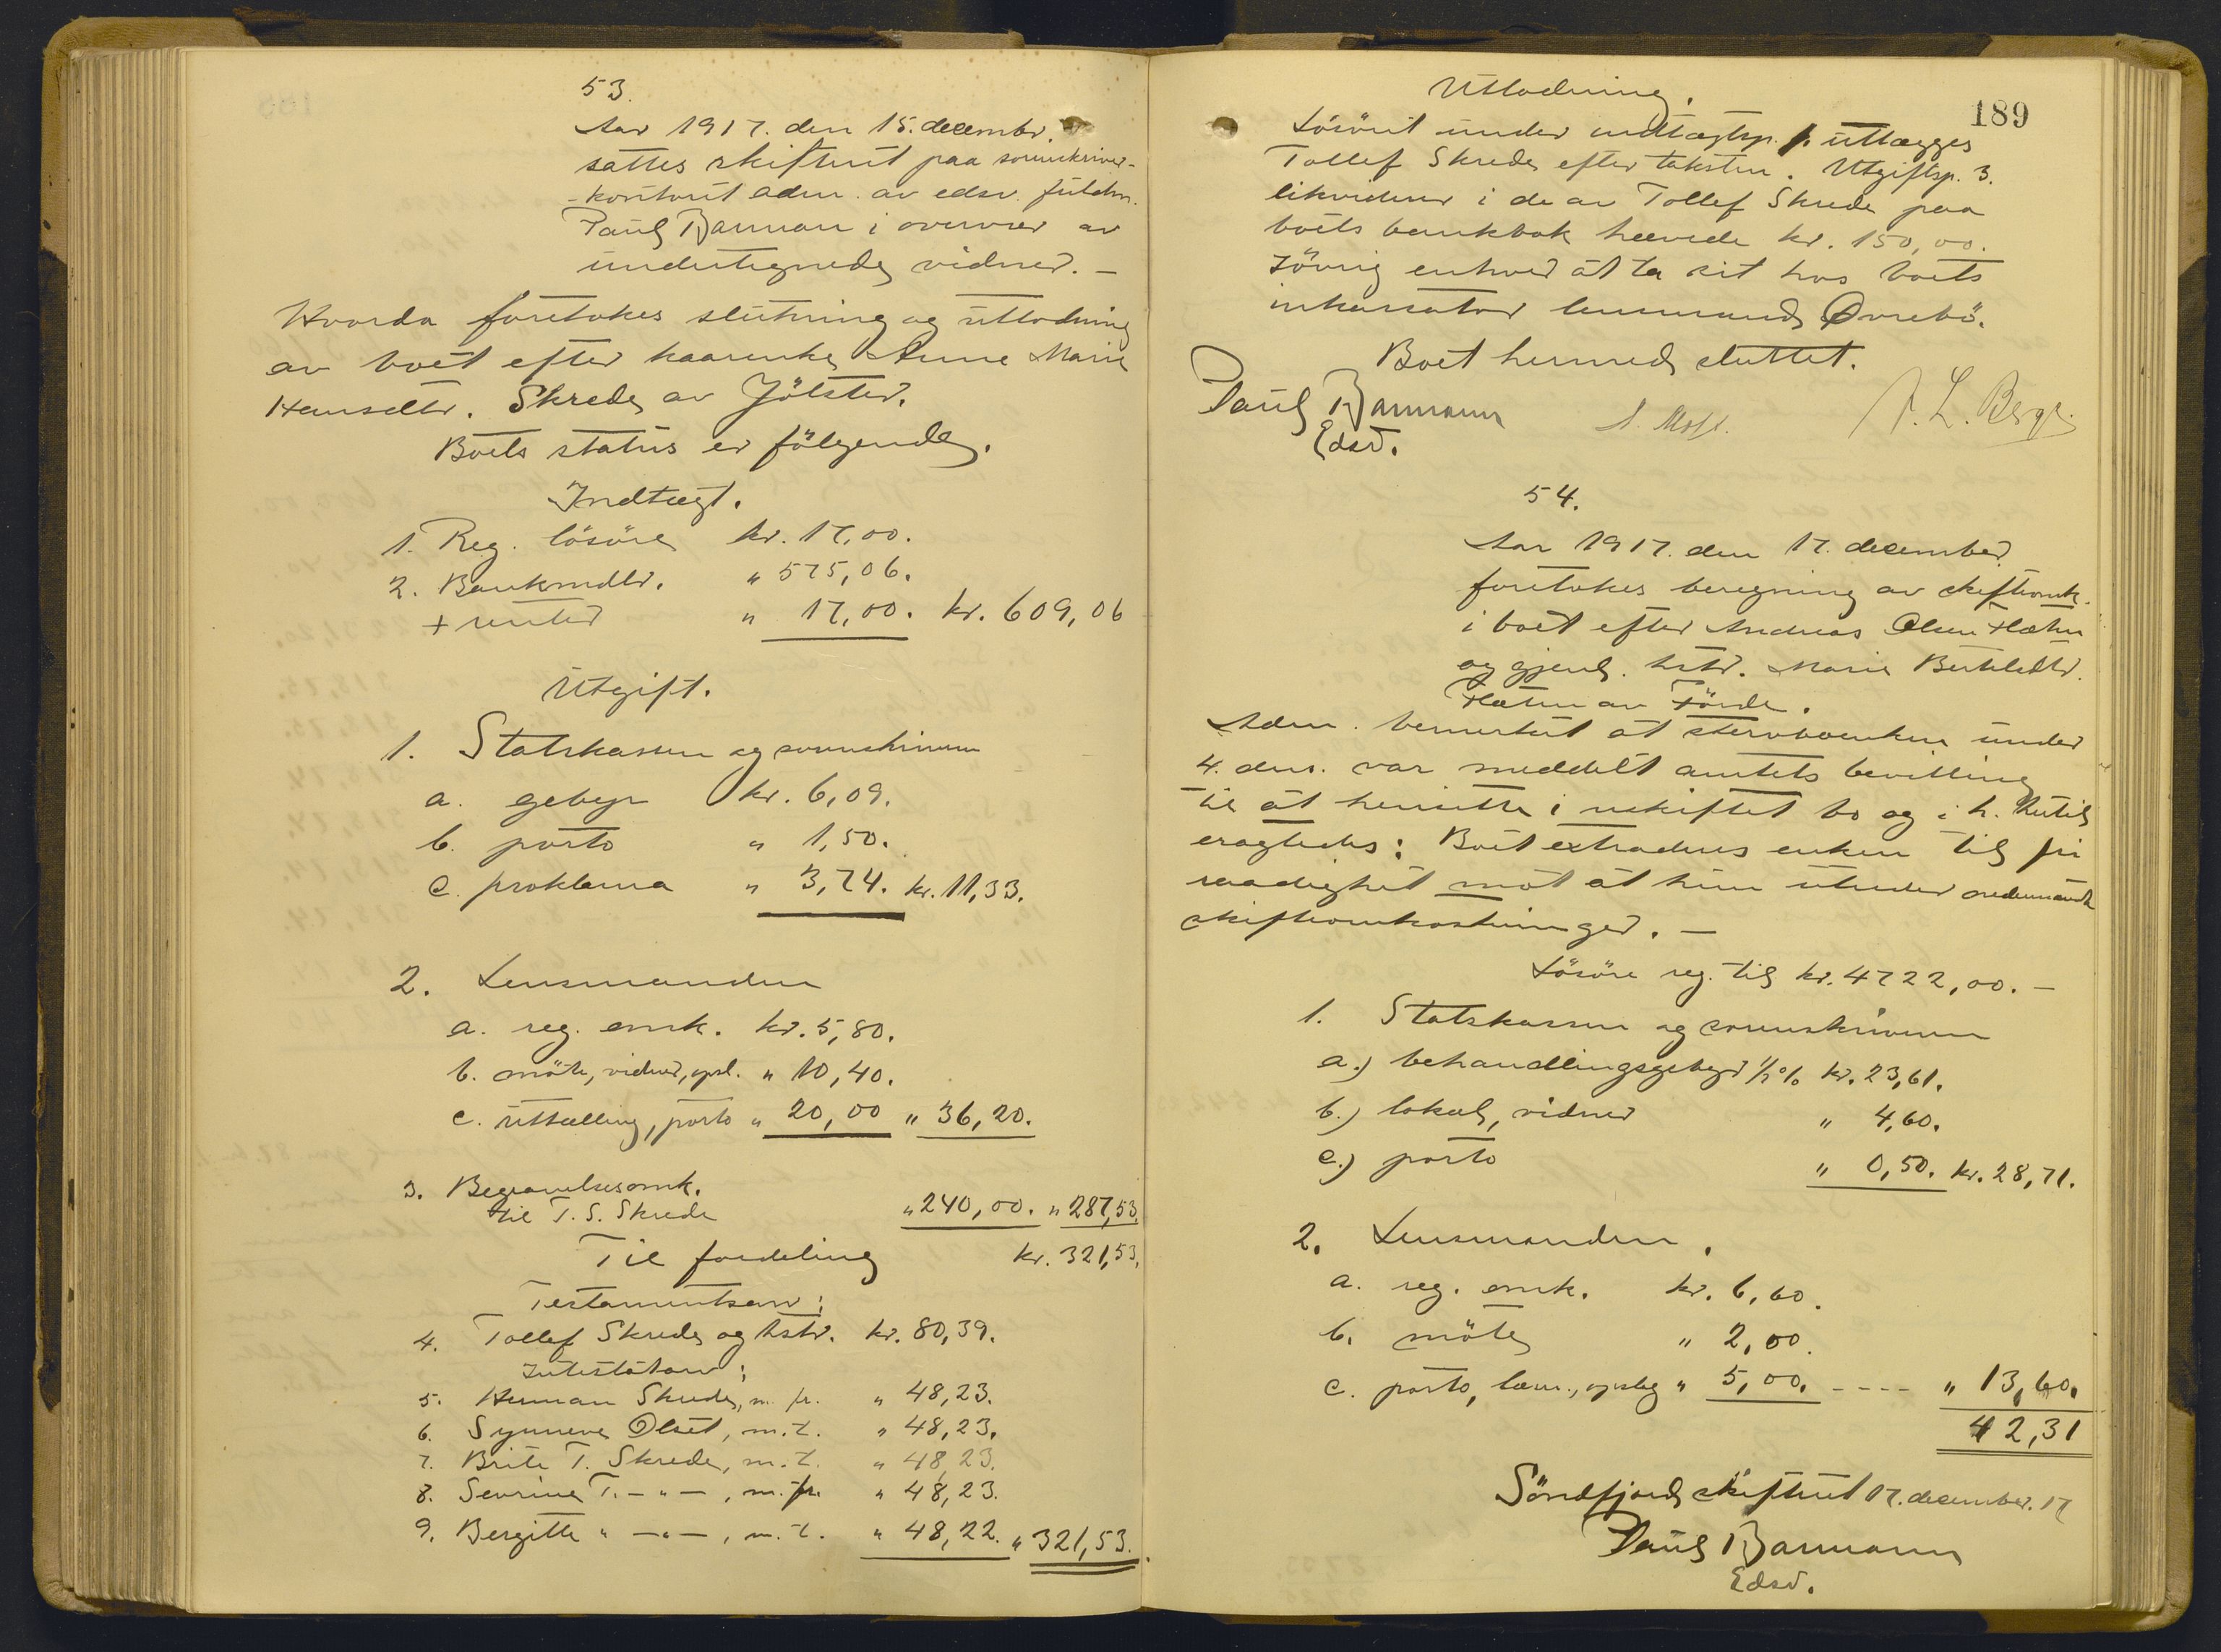 53.
Aar 1917. den 15. decembr.
sattes skifteret paa sorenskriver-
-kontoret adm. av edsv. fuldm.
Paul Barmann i overvær av
undertegnede vidner. —
Hvorda foretokes slutning og utlodning
av boet efter kaarenke Anne Marie
Hansdtr. Skrede av Jölster.
Boets status er fölgende.
Indtægt.
1. Reg. lösöre kr. 17,00.
2. Bankmdlr. " 575,06.
+ renter " 17,00. kr. 609,06
Utgift.
1. Statskassen og sorenskriveren
a. gebyr kr. 6,09.
b. porto " 1,50.
c. proklama " 3,74. kr. 11,33.
2. Lensmanden
a. reg. omk. kr. 5,80.
b. möte, vidner, opsl. " 10,40.
c. uttælling, porto " 20,00 " 36,20.
3. Begravelsesomk.
til T. S. Skrede " 240,00. " 287,53.
Til fordeling kr. 321,53.
Testamentsarv:
4. Tollef Skrede og hstr. kr. 80,39.
Intestatarv:
5. Herman Skrede, m. fr. " 48,23.
6. Synneve Olset, m. t. " 48,23.
7. Brite T. Skrede, m. t. " 48,23.
8. Sevrine T. — " —, m. fr. " 48,23.
9. Bergitte " — " —, m. t. " 48,22. " 321,53.
189
Utlodning.
Lösöret under indtægtsp. 1. utlægges
Tollef Skrede efter taksten. Utgiftsp. 3.
likvideres i de av Tollef Skrede paa
boets bankbok hævede kr. 150,00.
Iövrig enhver at ta sit hos boets
inkassator lensmand Øvrebö.
Boet hermed sluttet.
Paul Barmann A. L. Berge.
Edsv.
54.
Aar 1917. den 17. december
foretokes beregning av skifteomk.
i boet efter Andreas Olsen Hatn
og gjenl. hstr. Marie Bertelsdtr.
Hatn av Förde.
Adm. bemerket at stervboenken under
4. dns. var meddelt amtets bevilling
til at hensitte i uskiftet bo og i h. hertil
eragtedes: Boet extraderes enken til fri
raadighet mot at hun utreder nedennævnte
skifteomkostninger. —
Lösöre reg. til kr. 4722,00. —
1. Statskassen og sorenskriveren
a.) behandlingsgebyr 1/2 % kr. 23,61.
b.) lokale, vidner " 4,60.
c.) porto " 0,50. kr. 28,71.
2. Lensmanden.
a. reg. omk. kr. 6,60.
b. möte " 2,00.
c. porto, læm., opslag " 5,00. ---- " 13,60.
42,31
Söndfjord skifteret 17. december. 17
Paul Barmann
Edsv.